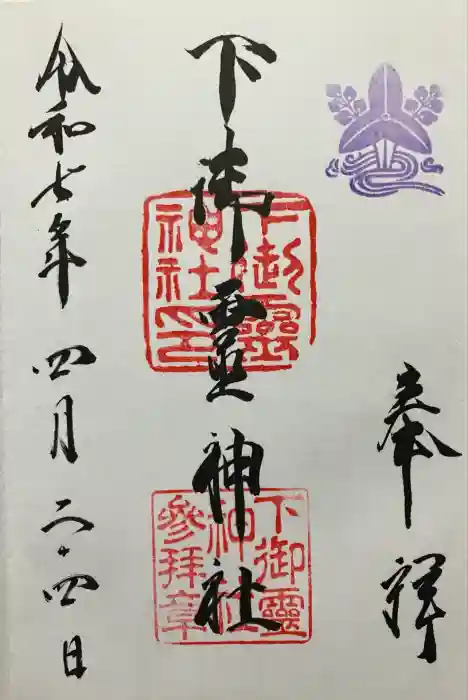 奉拝
下御靈神社
令和七年 四月二十四日
下御靈
神社印
下御靈
神社
參拝章